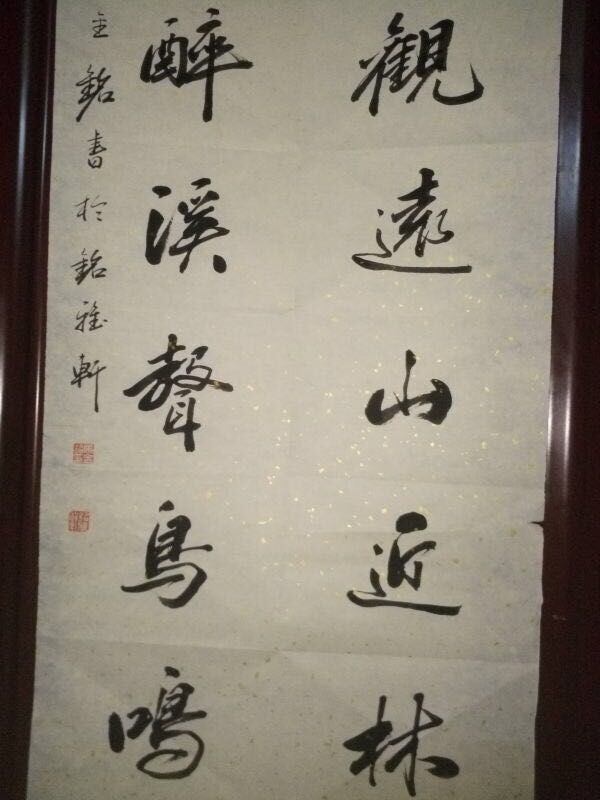 觀遠山近林
醉溪聲鳥鳴
主銘書於銘雅軒